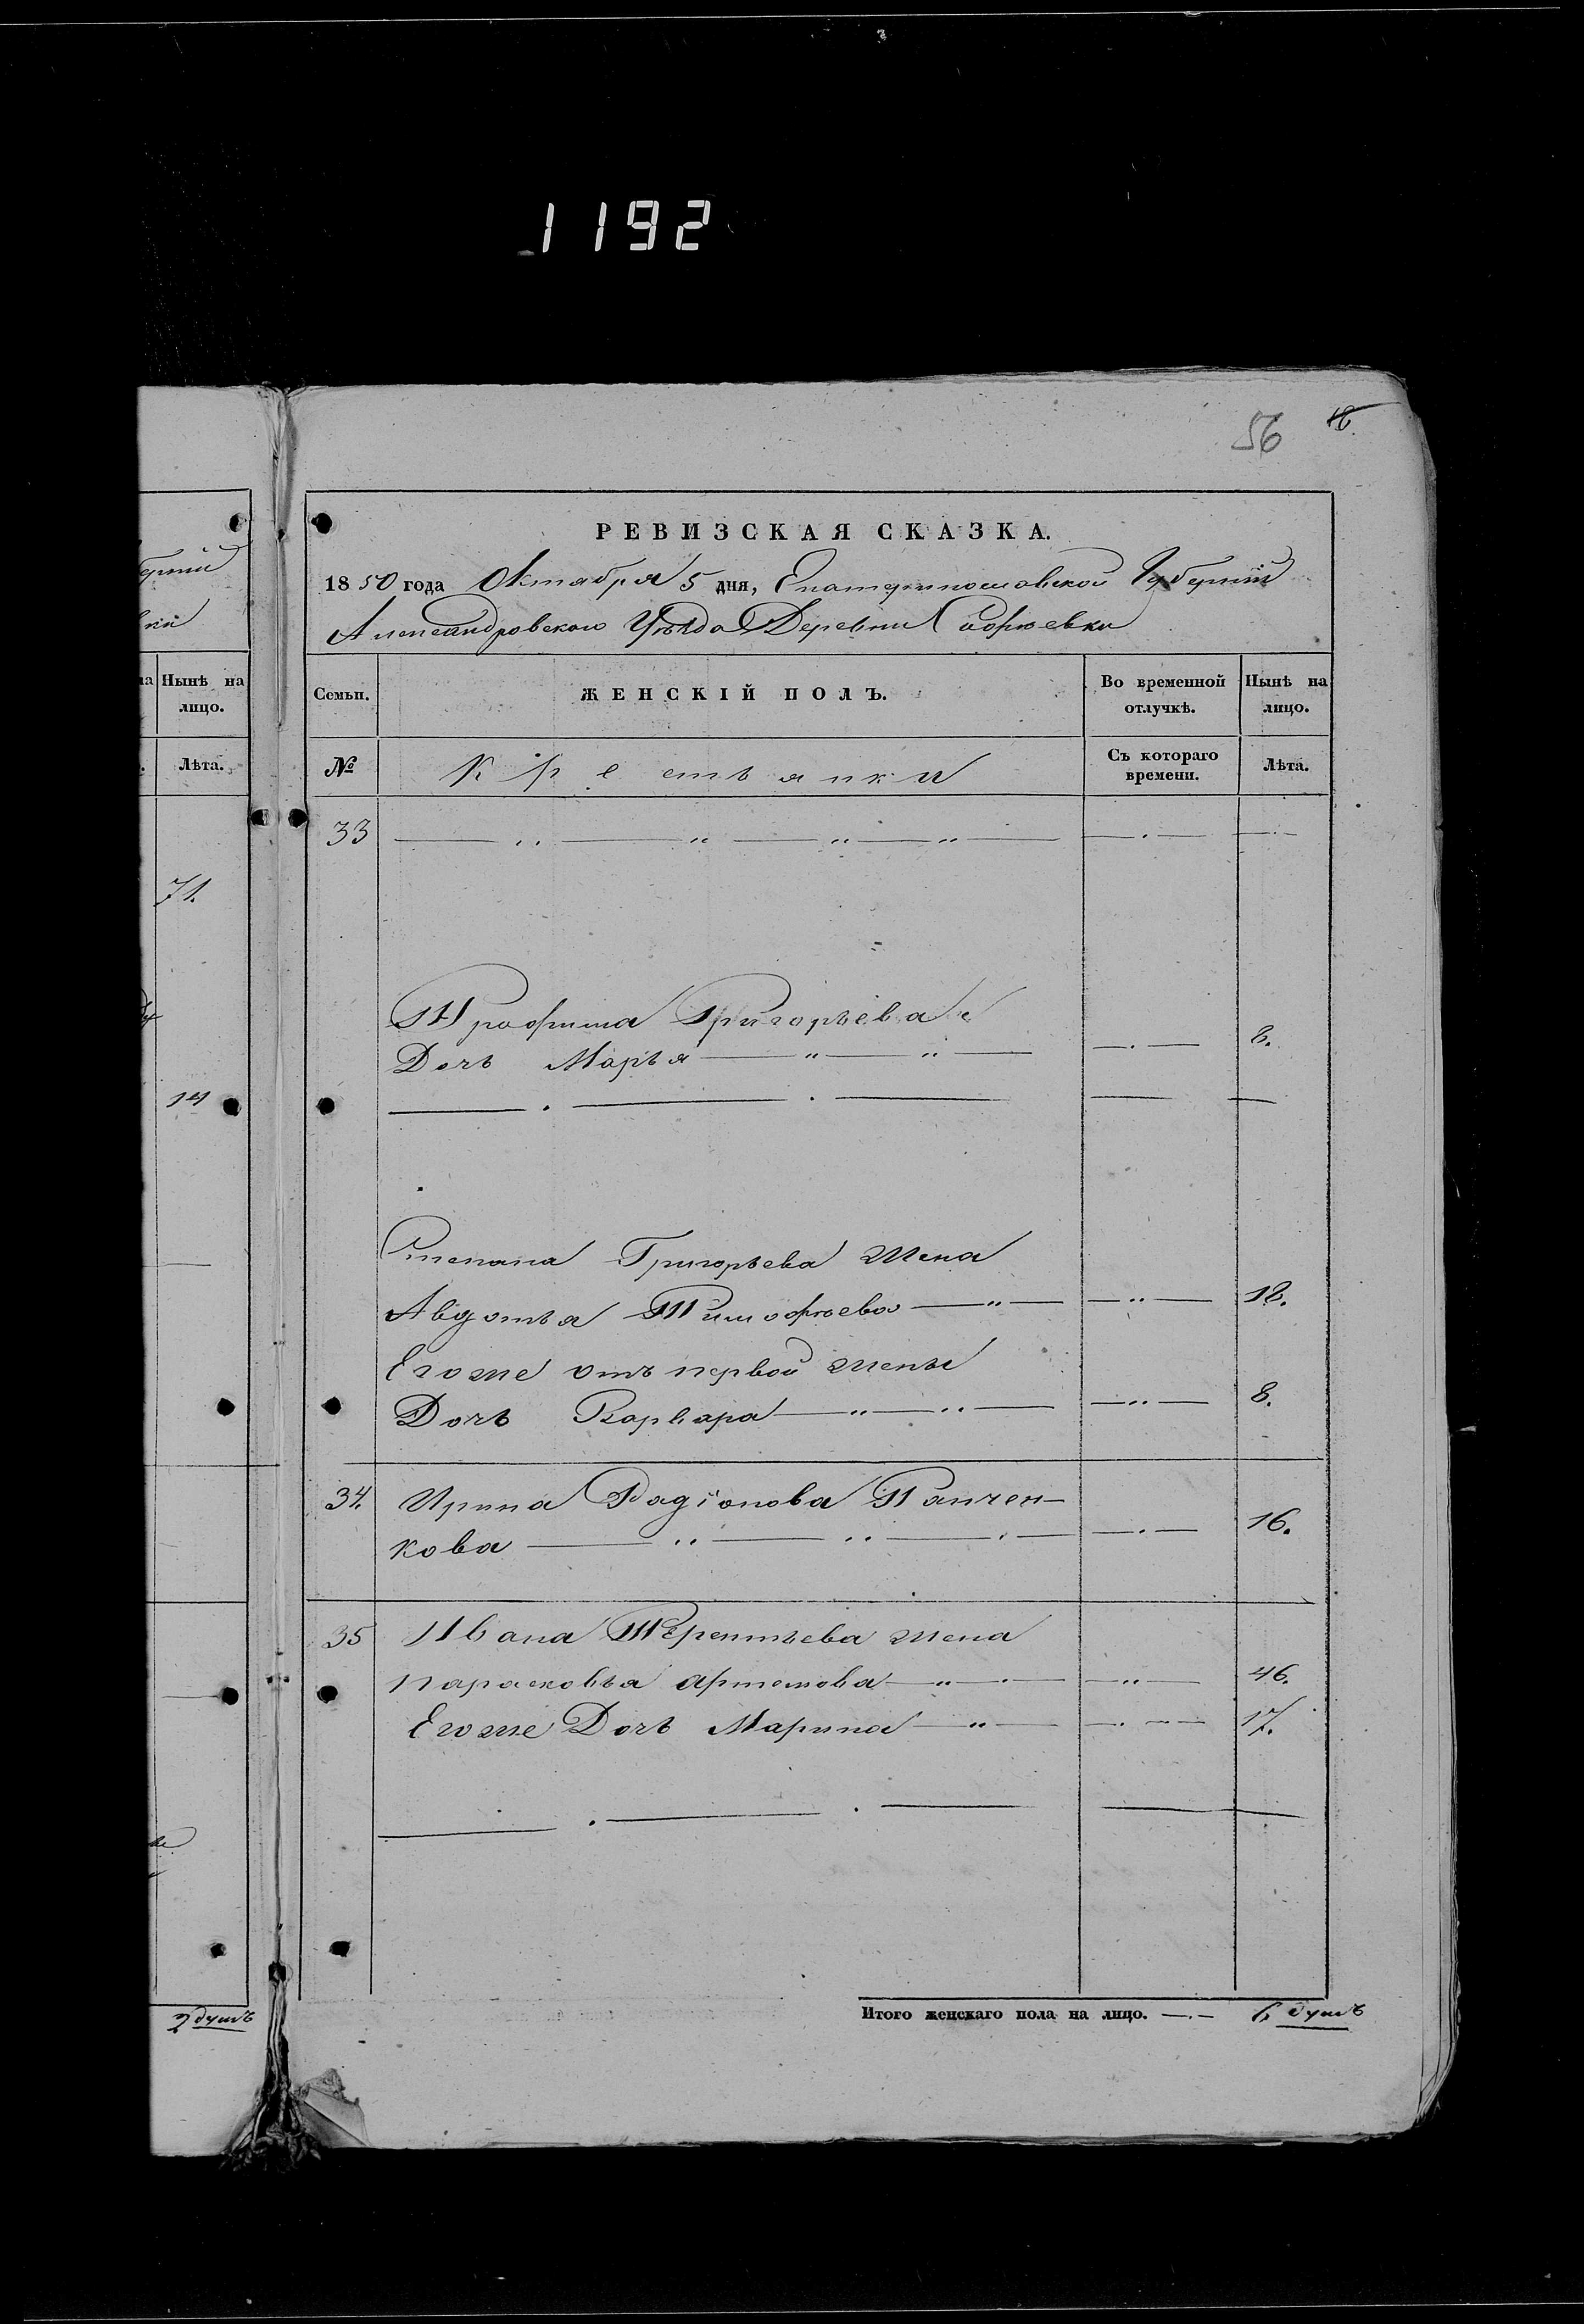 1192
56 18
РЕВИЗСКАЯ СКАЗКА.
1850 года Октября 5 дня, Екатеринославской Губерніи
Александровскаго Уѣзда Деревни Софіевки
Нынѣ на лицо.
Лѣта.
71.
14
2 душъ
Семьи. ЖЕНСКІЙ ПОЛЪ. Во временной отлучкѣ. Нынѣ на лицо.
№ Крестьянки Съ котораго времени. Лѣта.
33
Трофима Григорьева
Дочь Марья 8.
Степана Григорьева Жена
Авдотья Тимофѣева 18.
Егоже отъ первой жены
Дочь Варвара 8.
34. Ирина Радіонова Панчен-
кова 16.
35 Ивана Терентьева жена
Парасковья Артемова 46.
Егоже Дочь Марина 17.
Итого женскаго пола на лицо. 6 душъ